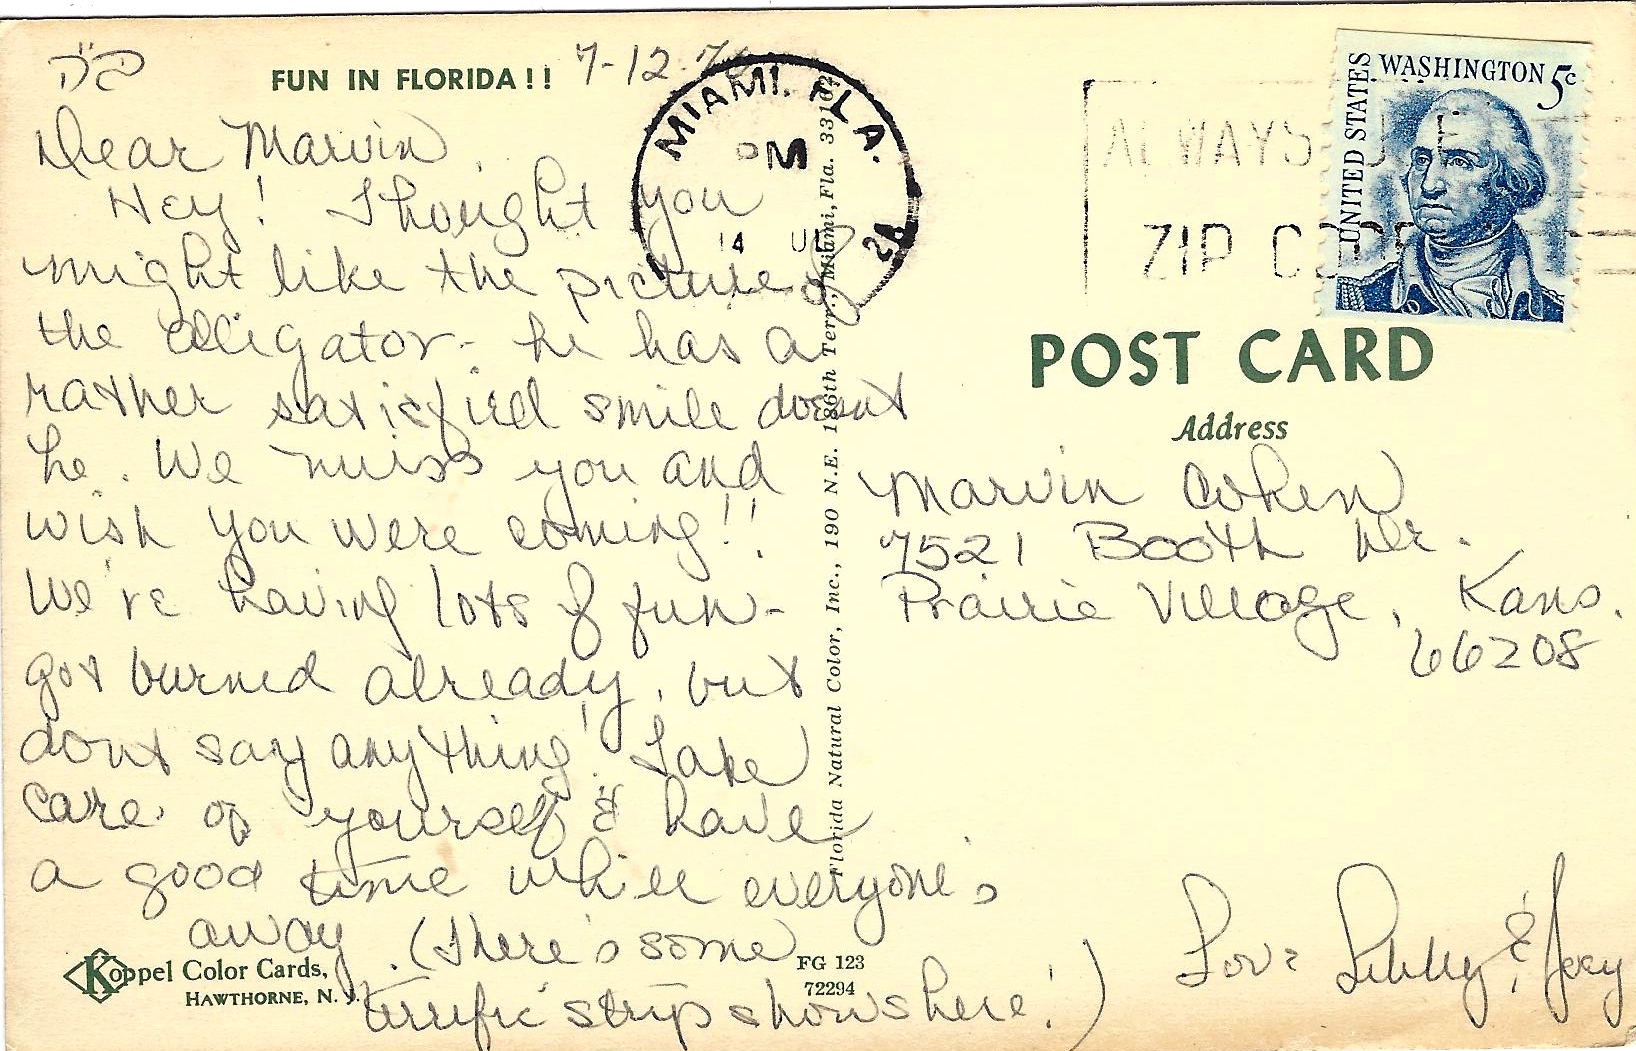 ב"ה
FUN IN FLORIDA!! 7-12-7
Dear Marvin,
Hey! Thought you
might like the picture of
the alligator - he has a
rather satisfied smile doesnt
he. We miss you and
wish you were coming!!
We're having lots of fun -
got burned already, but
dont say anything! Take
care of yourself & have
a good time while everyone's
away. (There's some
terrific strip shows here!)
Koppel Color Cards,
HAWTHORNE, N. J.
FG 123
72294
Florida Natural Color, Inc., 190 N.E. 186th Terr., Miami, Fla.
MIAMI. FLA.
PM
14
ALWAYS USE
ZIP CODE
UNITED STATES
WASHINGTON 5c
POST CARD
Address
Marvin Cohen
7521 Booth Dr.
Prairie Village, Kans.
66208
Love Libby & Joey